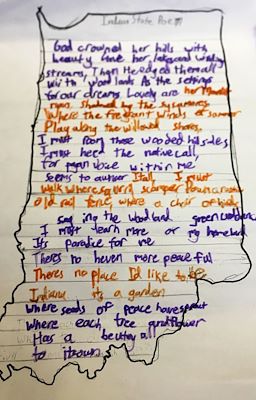 Indiana State Poem
God crowned her hills with
beauty Gave her lakes and winding
streams, Then He edged them all
with woodlands As the settings
for our dreams Lovely are her moonlit
rivers, shadowed by the sycamores
Where the fragrant winds of summer
Play along the willowed shores.
I must roam those wooded hillsides
I must heed the native call,
For a pagan voice within me
Seems to answer I tall. I must
walk where squirrels scamper Down a rustic
old rail fence, where a choir of birds
sing in the woodland green
I must learn more of my homeland
It's paradice for me
There's no heven more peaceful
There's no place I'd like to be
Indiana its a garden
Where seeds of peace have sprout
Where each tree and flower
Has a beutay all
to its own